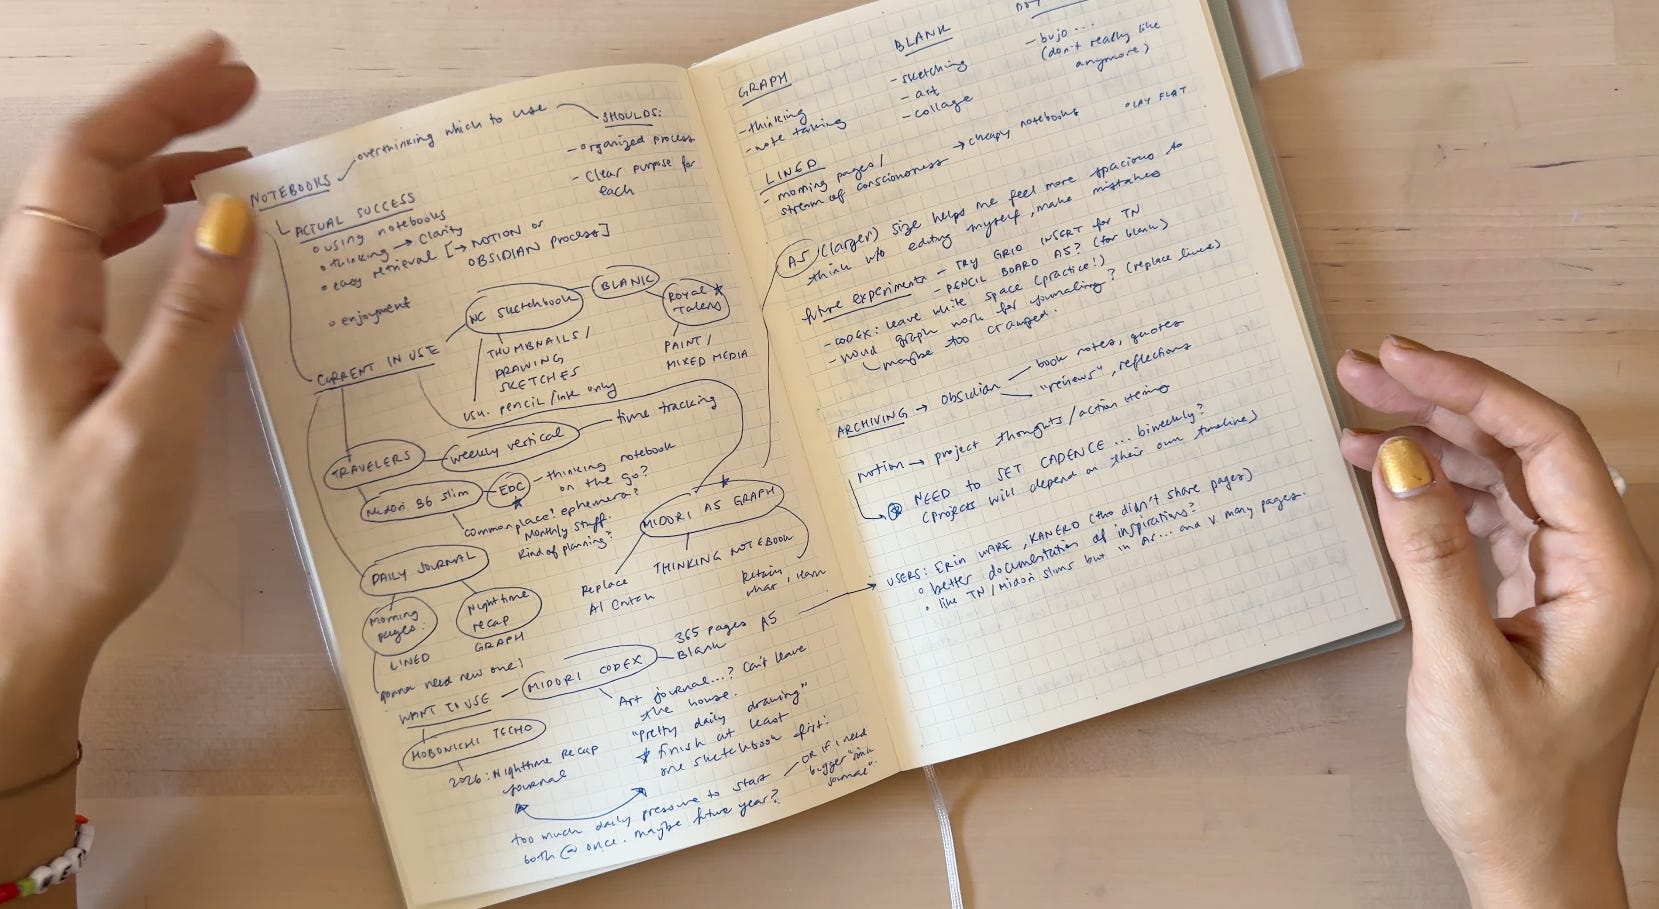 NOTEBOOKS
overthinking which to use
SHOULDS:
- organized process
- Clear purpose for
each
ACTUAL SUCCESS
using notebooks
thinking → Clarity
easy retrieval [→ NOTION or
OBSIDIAN process]
enjoyment
CURRENT IN USE
NC Sketchbook
BLANK
Royal
Talens
THUMBNAILS /
DRAWING
SKETCHES
usu. pencil/ink only
PAINT /
MIXED MEDIA
TRAVELERS
weekly vertical
time tracking
Midori B6 Slim
EDC
- thinking notebook
on the go?
commonplace? ephemera?
Monthly stuff.
Kind of planning?
MIDORI A5 GRAPH
Replace
AI Crutch
THINKING NOTEBOOK
Retain
what I learn
DAILY JOURNAL
Morning
pages.
LINED
gonna need new one!
Nighttime
recap
GRAPH
WANT TO USE
MIDORI CODEX
365 pages A5
Blank
Art journal...? Can't leave
the house.
"Pretty daily drawing"
finish at least
one sketchbook first!
HOBONICHI TECHO
2026: Nighttime recap
journal
too much daily pressure to start
both @ once. maybe future year?
OR if I need
bigger
journal".
GRAPH
- thinking
- note taking
BLANK
- sketching
- art
- collage
- bujo...
(don't really like
anymore)
LINED
- morning pages /
stream of consciousness → cheapy notebooks
LAY FLAT
A5 (larger) size helps me feel more spacious to
think w/o editing myself, make mistakes
future experiments - TRY GRID INSERT for TN
- PENCIL BOARD A5? (for blank)
- CODEX: leave white space (practice!)
- would graph work for journaling? (replace lined)
maybe too cramped.
ARCHIVING → Obsidian
book notes, quotes
"reviews", reflections
notion → project thoughts / action items
NEED TO SET CADENCE... biweekly?
(projects will depend on their own timeline)
USERS: Erin WARE, KANERO (tho didn't share pages)
better documentation of inspirations?
like TN/Midori slims but in A5... and v. many pages.